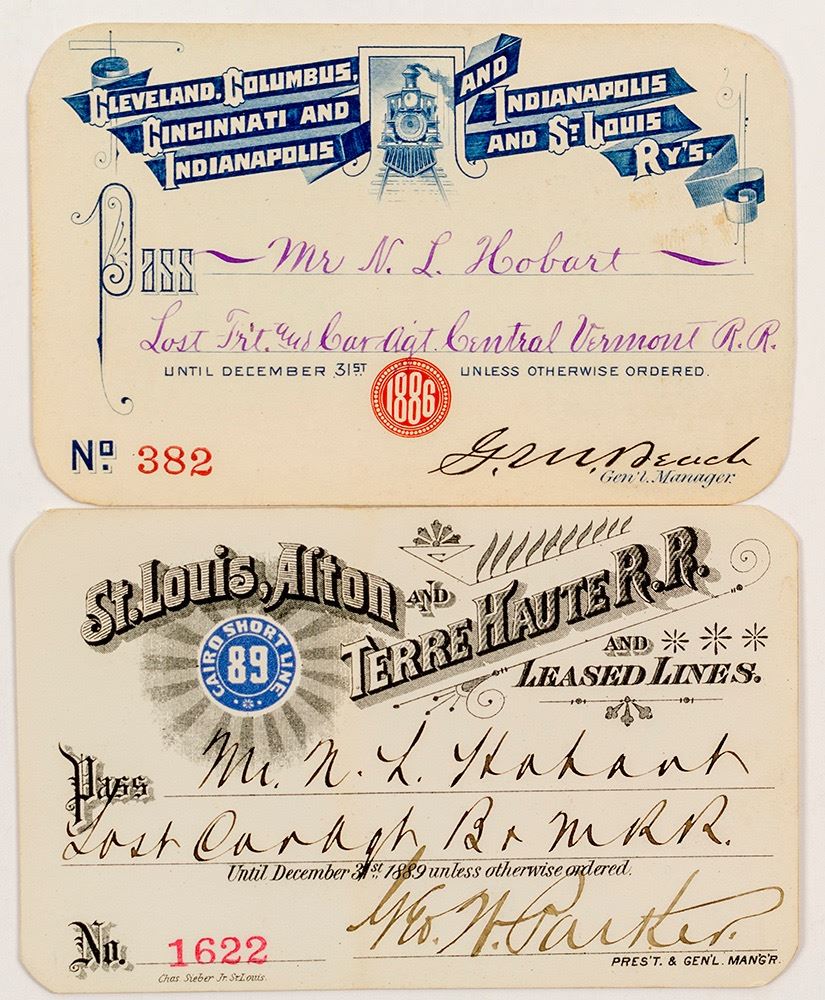 CLEVELAND, COLUMBUS,
CINCINNATI AND
INDIANAPOLIS
AND
INDIANAPOLIS
AND ST. LOUIS
RY'S.
Pass Mr N. L. Hobart
Lost Fr't. and Car Agt. Central Vermont R.R.
UNTIL DECEMBER 31ST UNLESS OTHERWISE ORDERED.
1886
No. 382
G. M. Beach
Gen'l. Manager.
St. Louis, Alton AND
TERRE HAUTE R.R.
AND
LEASED LINES.
CAIRO SHORT LINE
89
Pass Mr. N. L. Hobart
Lost Car Agt B & M R R.
Until December 31st, 1889 unless otherwise ordered.
Geo. W. Parker.
No. 1622
PRES'T. & GEN'L. MAN'G'R.
Chas Sieber Jr. St. Louis.